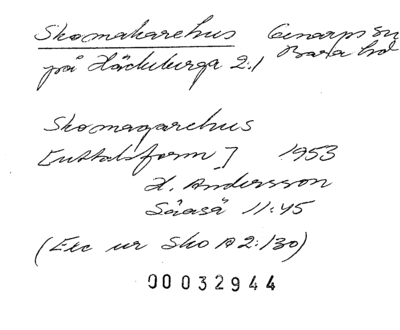 Skomakarehus Genarps sn
på Häckeberga 2:1 Bara hd
Skomagarehus
[uttalsform] 1953
H. Andersson
11:45
(Exc ur Sko A2:130)
00032944